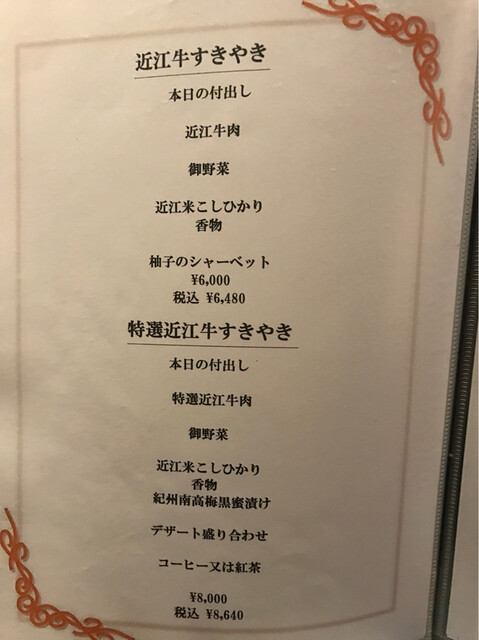 近江牛すきやき
本日の付出し
近江牛肉
御野菜
近江米こしひかり
香物
柚子のシャーベット
¥6,000
税込 ¥6,480
特選近江牛すきやき
本日の付出し
特選近江牛肉
御野菜
近江米こしひかり
香物
紀州南高梅黒蜜漬け
デザート盛り合わせ
コーヒー又は紅茶
¥8,000
税込 ¥8,640